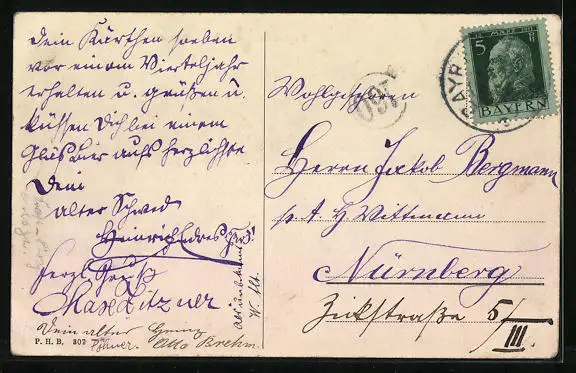 Dein Kärtchen soeben
vor einem Vierteljahr
erhalten u. grüßen u.
küssen Dich bei einem
Glas Bier aufs herzlichste
Dein
alter Schwed
Heinrich
Herzl. Gruß
Max Litzner
Dein alter
Otto Brehm
P. H. B. 807
12. MÄRZ 1911
5
BAYERN
BAYR
Wohlgeboren
Herrn Jakob Bergmann
p. A. H Wittmann
Nürnberg
Zickstraße 5/
III.